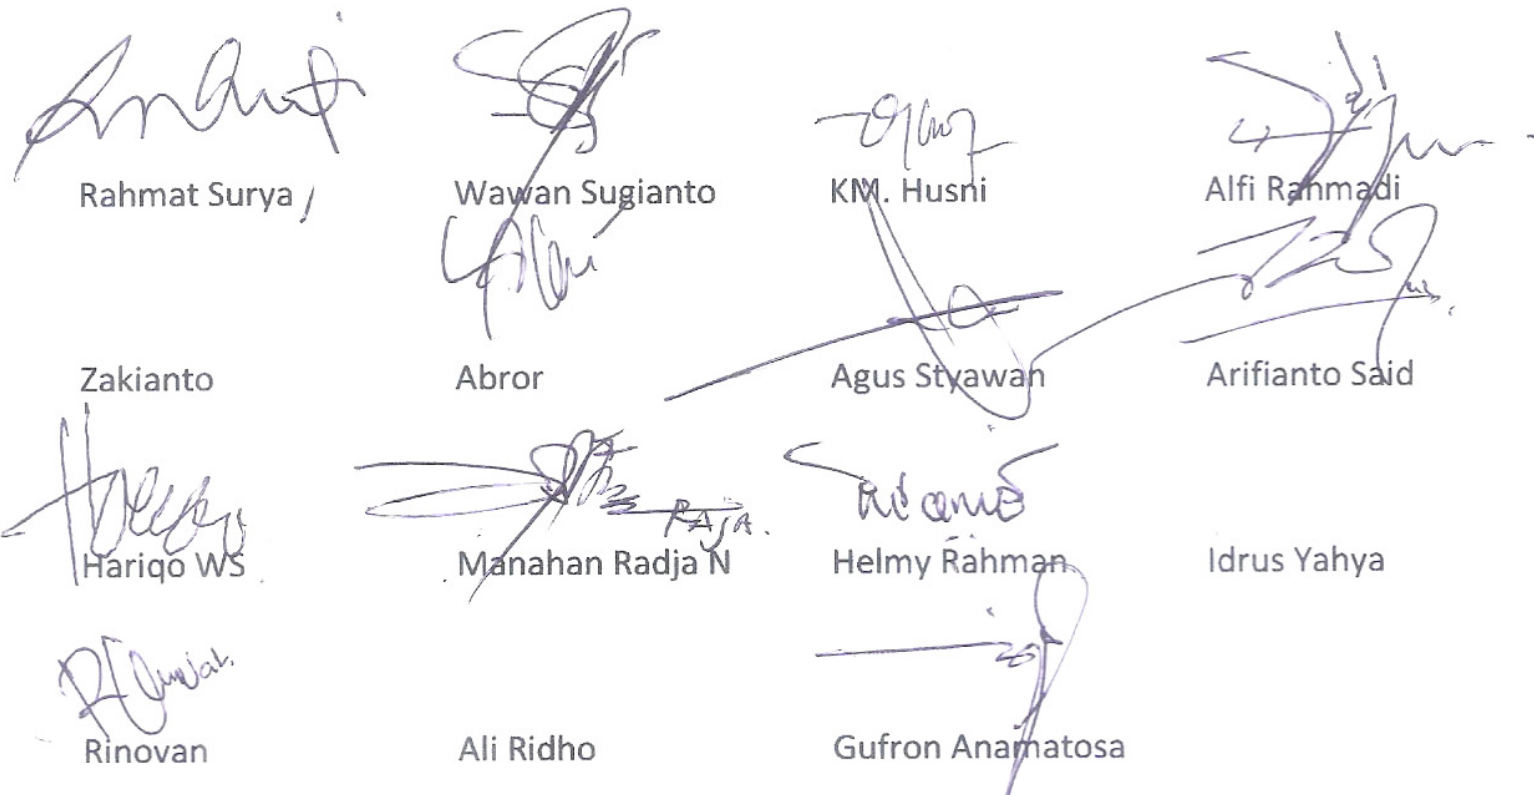 Rahmat Surya Wawan Sugianto KM. Husni Alfi Rahmadi
Zakianto Abror Agus Styawan Arifianto Said
RAJA.
Hariqo WS Manahan Radja N Helmy Rahman Idrus Yahya
Rinovan Ali Ridho Gufron Anamatosa